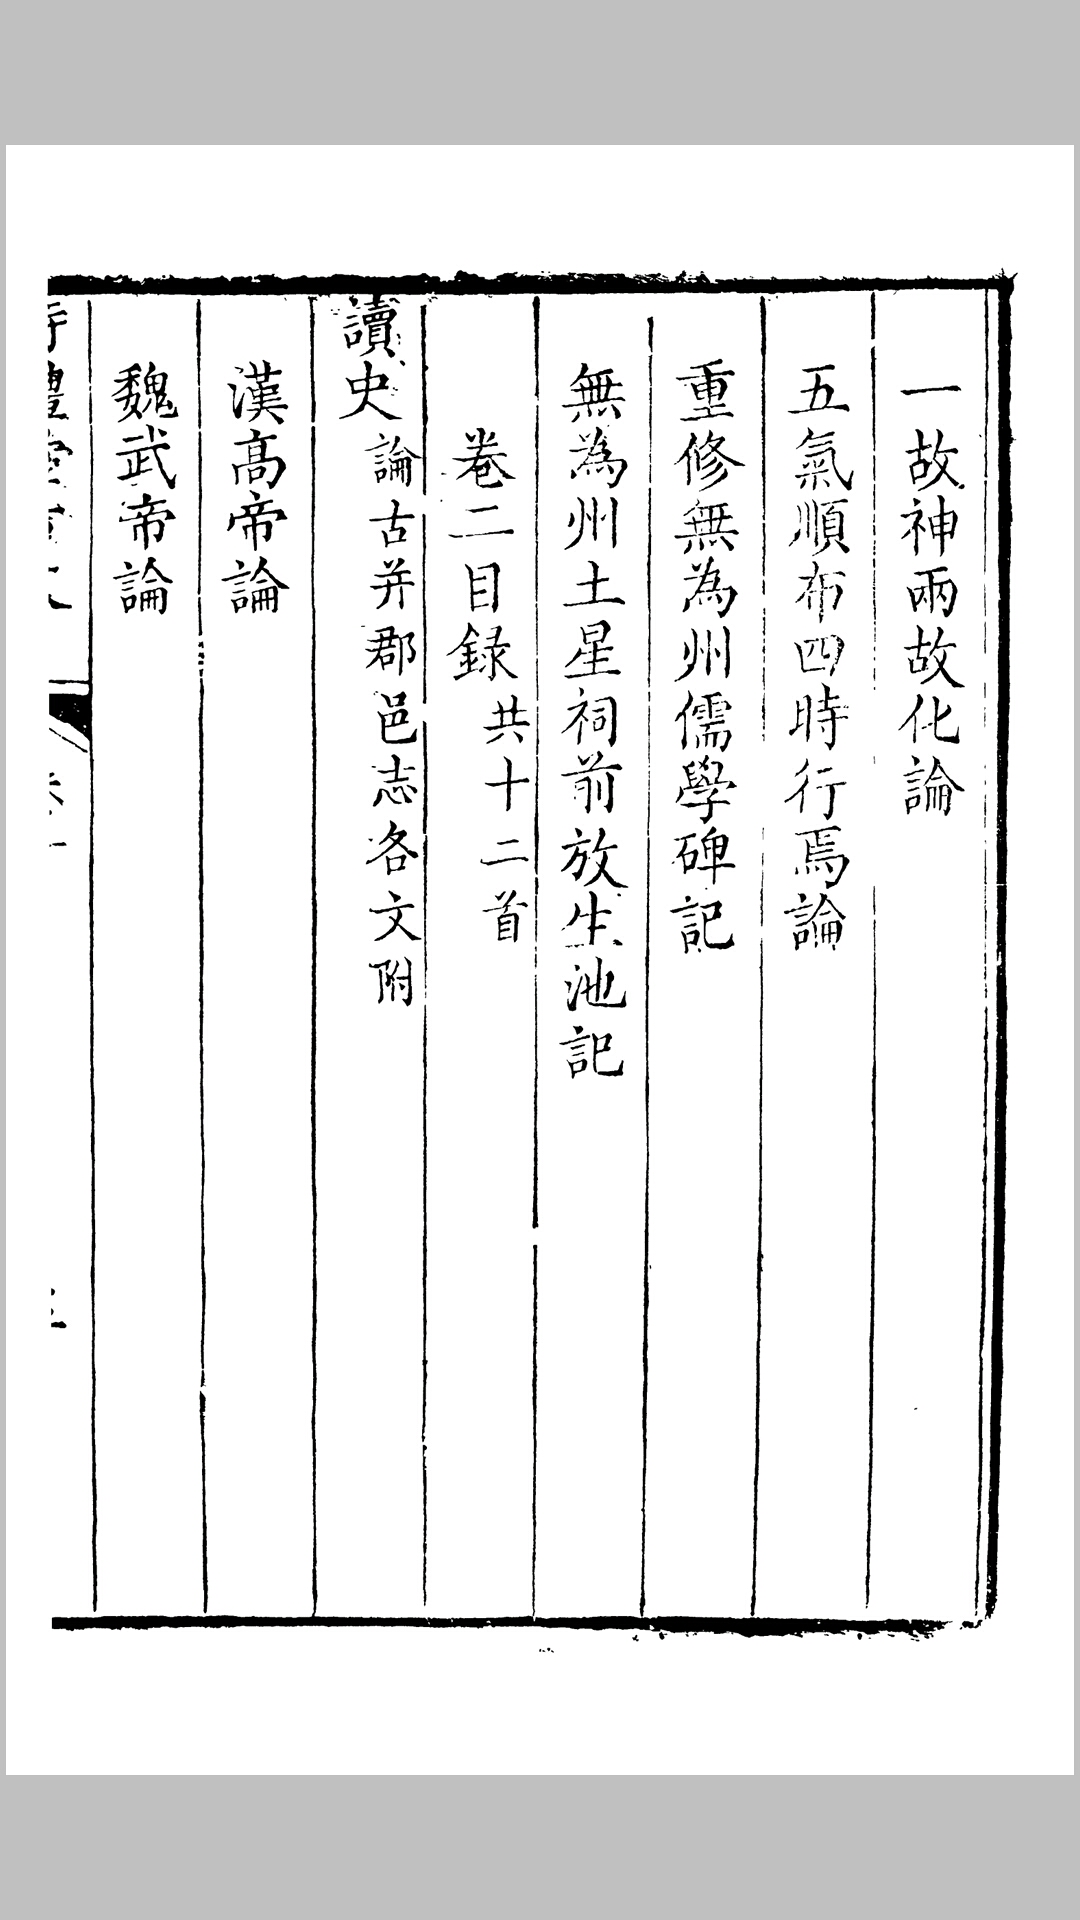 一故神兩故化論
五氣順布四時行焉論
重修無為州儒學碑記
無為州土星祠前放生池記
卷二目錄共十二首
讀史論古并郡邑志各文附
漢高帝論
魏武帝論